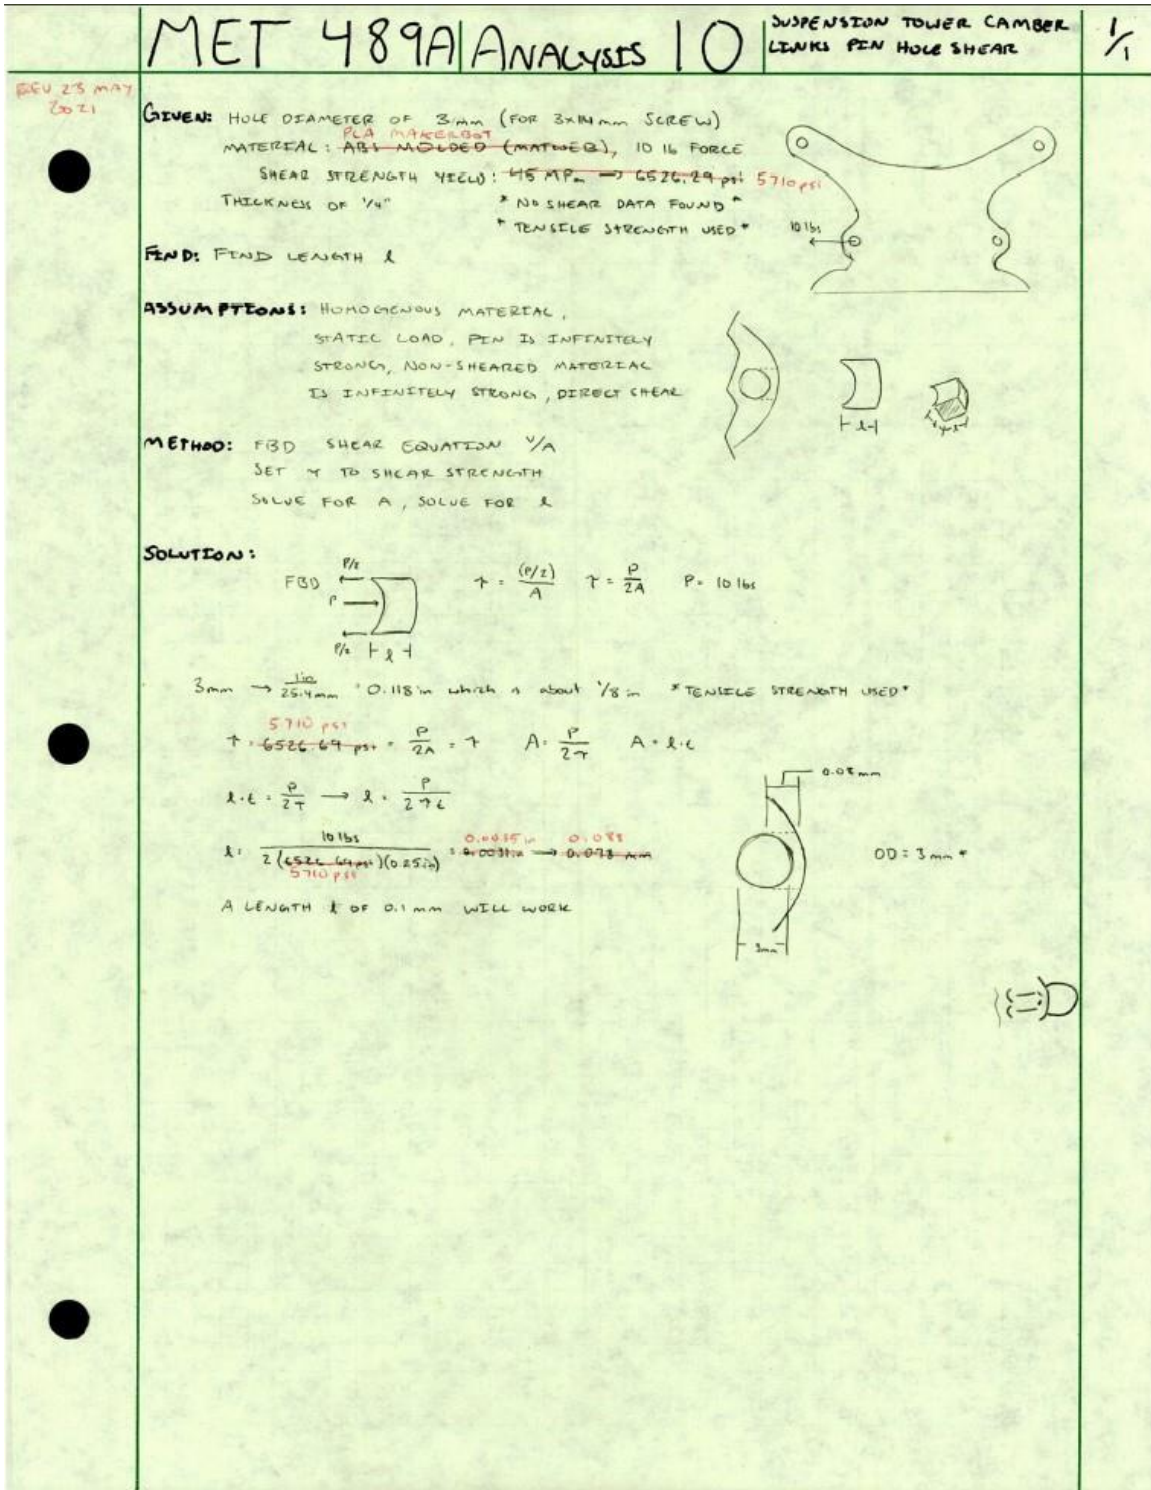 MET 489A ANALYSIS 10 SUSPENSION TOWER CAMBER LINKS PIN HOLE SHEAR 1/1
REV 23 MAY 2021
GIVEN: HOLE DIAMETER OF 3mm (FOR 3x14mm SCREW)
PLA MAKERBOT
MATERIAL: ABS MOLDED (MATWEB), 10 lb FORCE
SHEAR STRENGTH YIELD: 45 MPa → 6526.29 psi 5710 psi
THICKNESS OF 1/4" * NO SHEAR DATA FOUND *
* TENSILE STRENGTH USED *
10 lbs
FIND: FIND LENGTH l
ASSUMPTIONS: HOMOGENOUS MATERIAL,
STATIC LOAD, PIN IS INFINITELY
STRONG, NON-SHEARED MATERIAL
IS INFINITELY STRONG, DIRECT SHEAR
l
METHOD: FBD SHEAR EQUATION V/A
SET τ TO SHEAR STRENGTH
SOLVE FOR A, SOLVE FOR l
SOLUTION:
FBD P/2 P P/2 l τ = (P/2)/A τ = P/2A P = 10 lbs
3mm → 1in/25.4mm = 0.118 in which is about 1/8 in *TENSILE STRENGTH USED*
5710 psi
τ = 6526.69 psi = P/2A = τ A = P/2τ A = l·t
l·t = P/2τ → l = P/2τt
0.08mm
l = 10 lbs / 2(6526.69 psi)(0.25in) = 0.0031in → 0.078 mm
5710 psi 0.0035 in 0.088
OD = 3mm *
3mm
A LENGTH l OF 0.1 mm WILL WORK